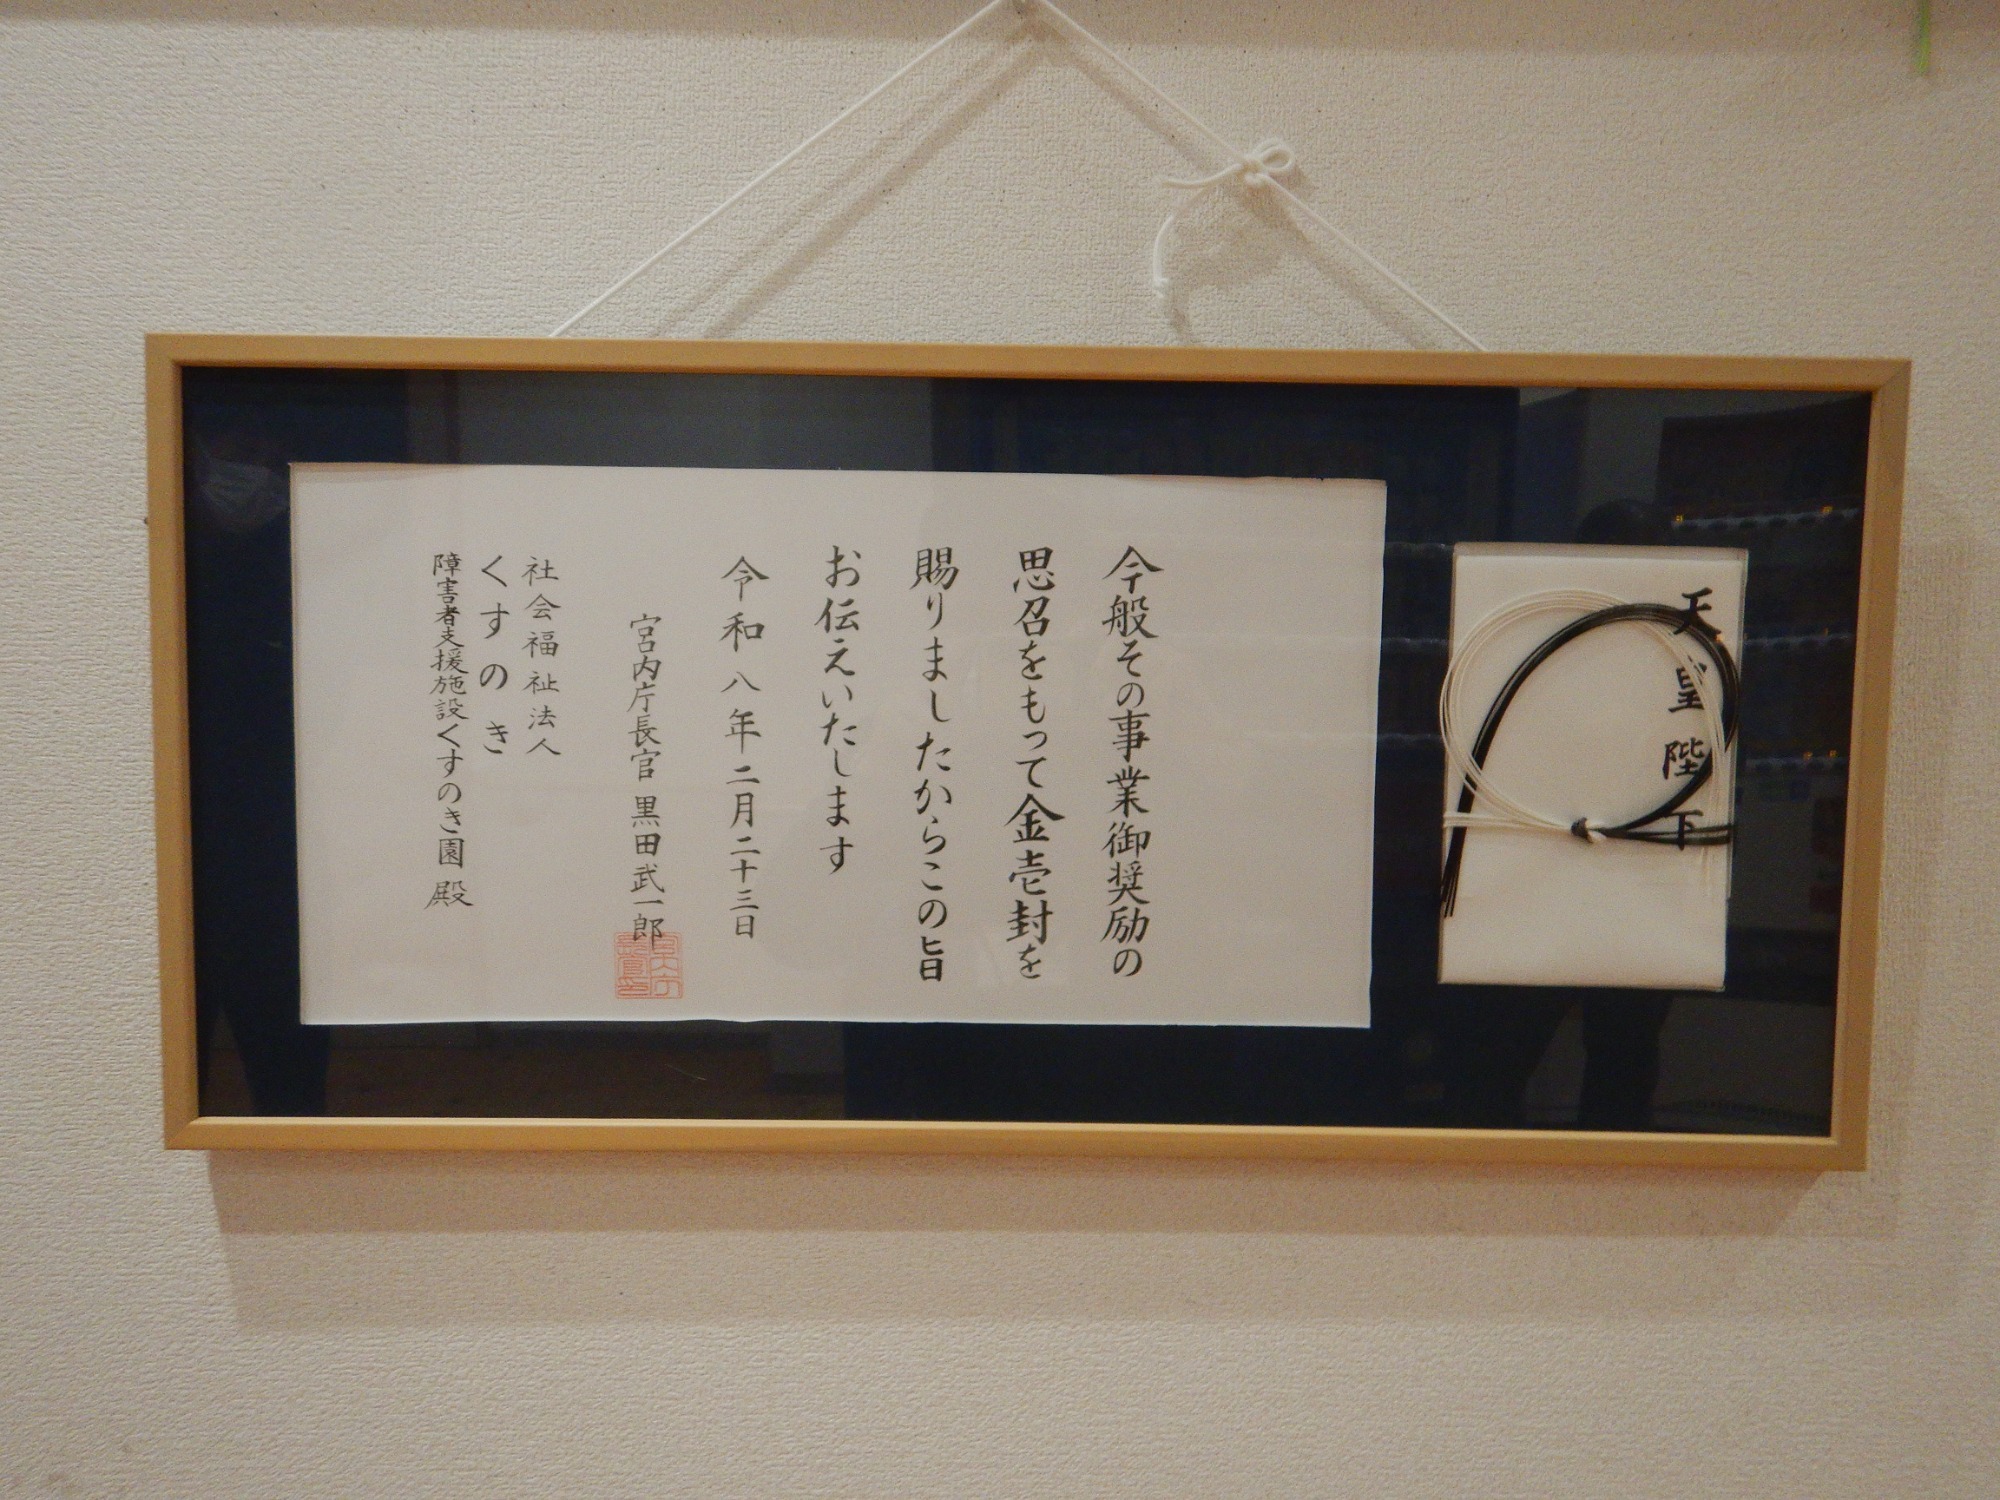 天皇陛下
今般その事業御奨励の
思召をもって金壱封を
賜りましたからこの旨
お伝えいたします
令和八年二月二十三日
宮内庁長官 黒田武一郎
社会福祉法人
くすのき
障害者支援施設くすのき園 殿